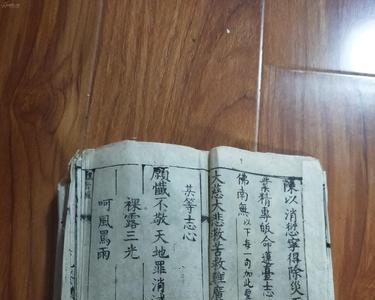 陳以消愆寧得除災
業精專皈命蓮臺志心
佛南無以下每一句加此聖
大慈大悲救苦救難廣
某等志心
願懺不敬天地罪消滅
裸露三光
呵風罵雨